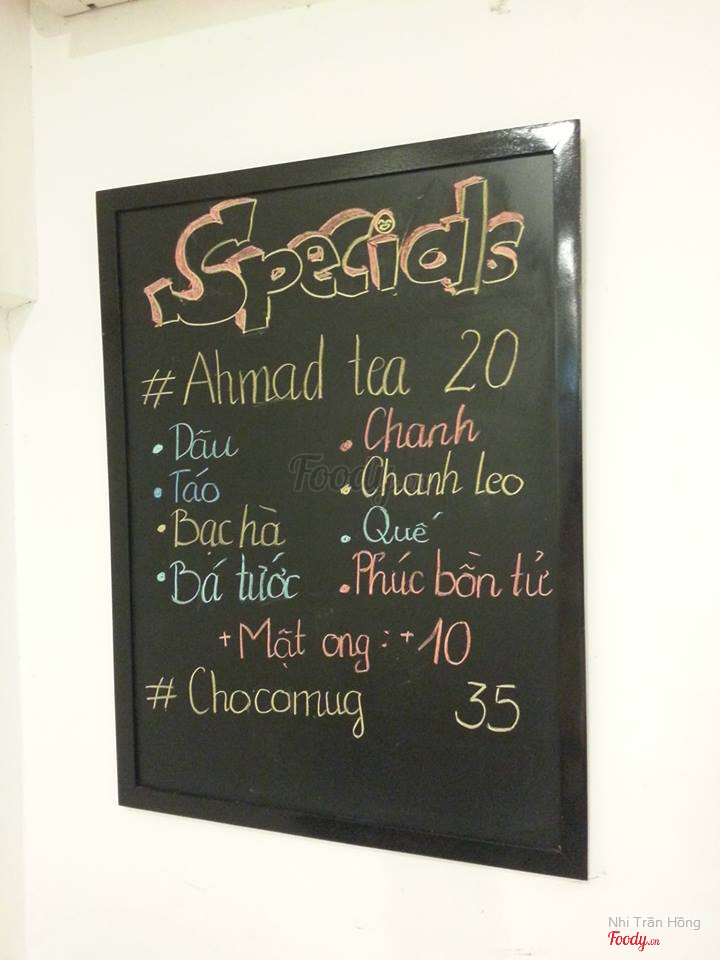 Specials
# Ahmad tea 20
• Dâu • Chanh
• Táo • Chanh leo
• Bạc hà • Quế
• Bá tước • Phúc bồn tử
+ Mật ong : + 10
# Chocomug 35
Foody.vn
Nhi Trần Hồng
Foody.vn